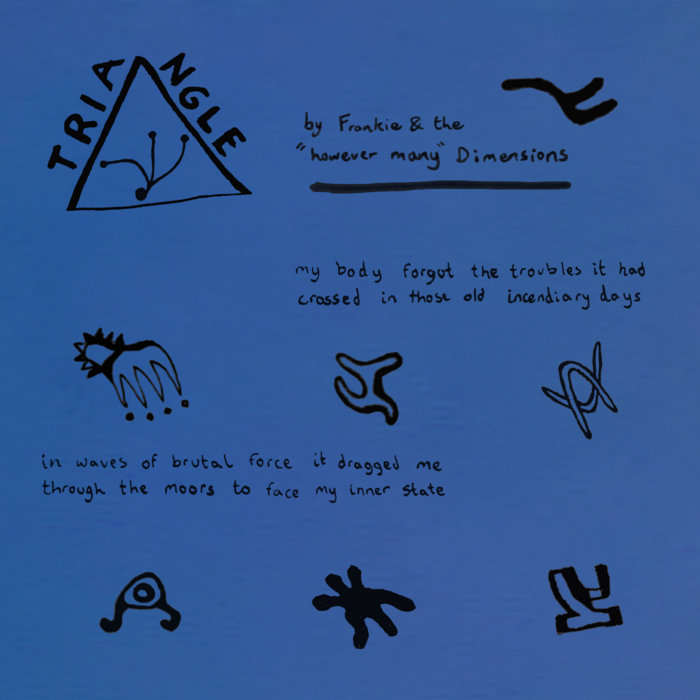 TRIANGLE
by Frankie & the
"however many" Dimensions
my body forgot the troubles it had
crossed in those old incendiary days
in waves of brutal force it dragged me
through the moors to face my inner state